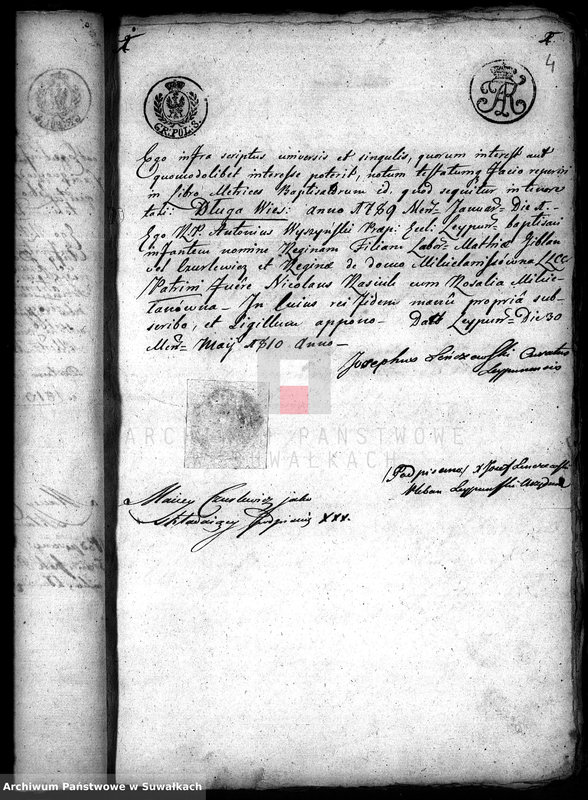 4
GR. POL. S.
Ego infra scriptus universis et singulis, quorum interest aut
quomodolibet interesse poterit, notum testatumq facio reperiri
in Libro Metrices Baptisatorum id, quod sequitur in tenore
tali: Dluga Wies: Anno 1789 Men: Januar: Die 1.
Ego V.P. Antonius Wyszynski Eccl: Leypun: baptisavi
infantem nomine Reginam Filiam Labor: Mathiæ
vel Czurlewicz et Reginæ de domo LLCC
Patrini fuere Nicolaus cum Rosalia
In cujus rei fidem manu propria sub-
scribo, et Sigillum appono. Datt Leypun: Die 30
Men: Maij 1810 Anno
Josephus Lenczewski Curatus
Leypunensis
(Podpisano) X Jozef Lenczewski
Pleban Leypunski
Maciey Czurlewicz jako
Składaiący podpisuię XXX.
ARCHIWUM PAŃSTWOWE
W SUWAŁKACH
Archiwum Państwowe w Suwałkach